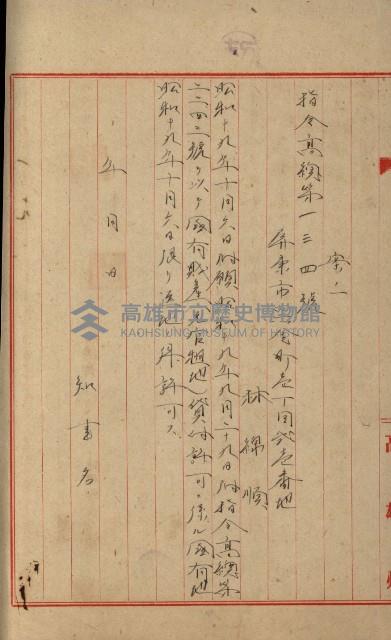 案二
指令高總第一三四號
屏東市 町壱丁目 壱番地
林 順
昭和十九年十月六日附願昭和十九年九月二十九日附指令高總第
二二四二號ヲ以テ國有財産 貸付許可ニ係ル國有地
昭和十九年十月六日限リ返地ノ件許可ス
年 月 日
知事名
高雄市立歷史博物館
KAOHSIUNG MUSEUM OF HISTORY
高雄州